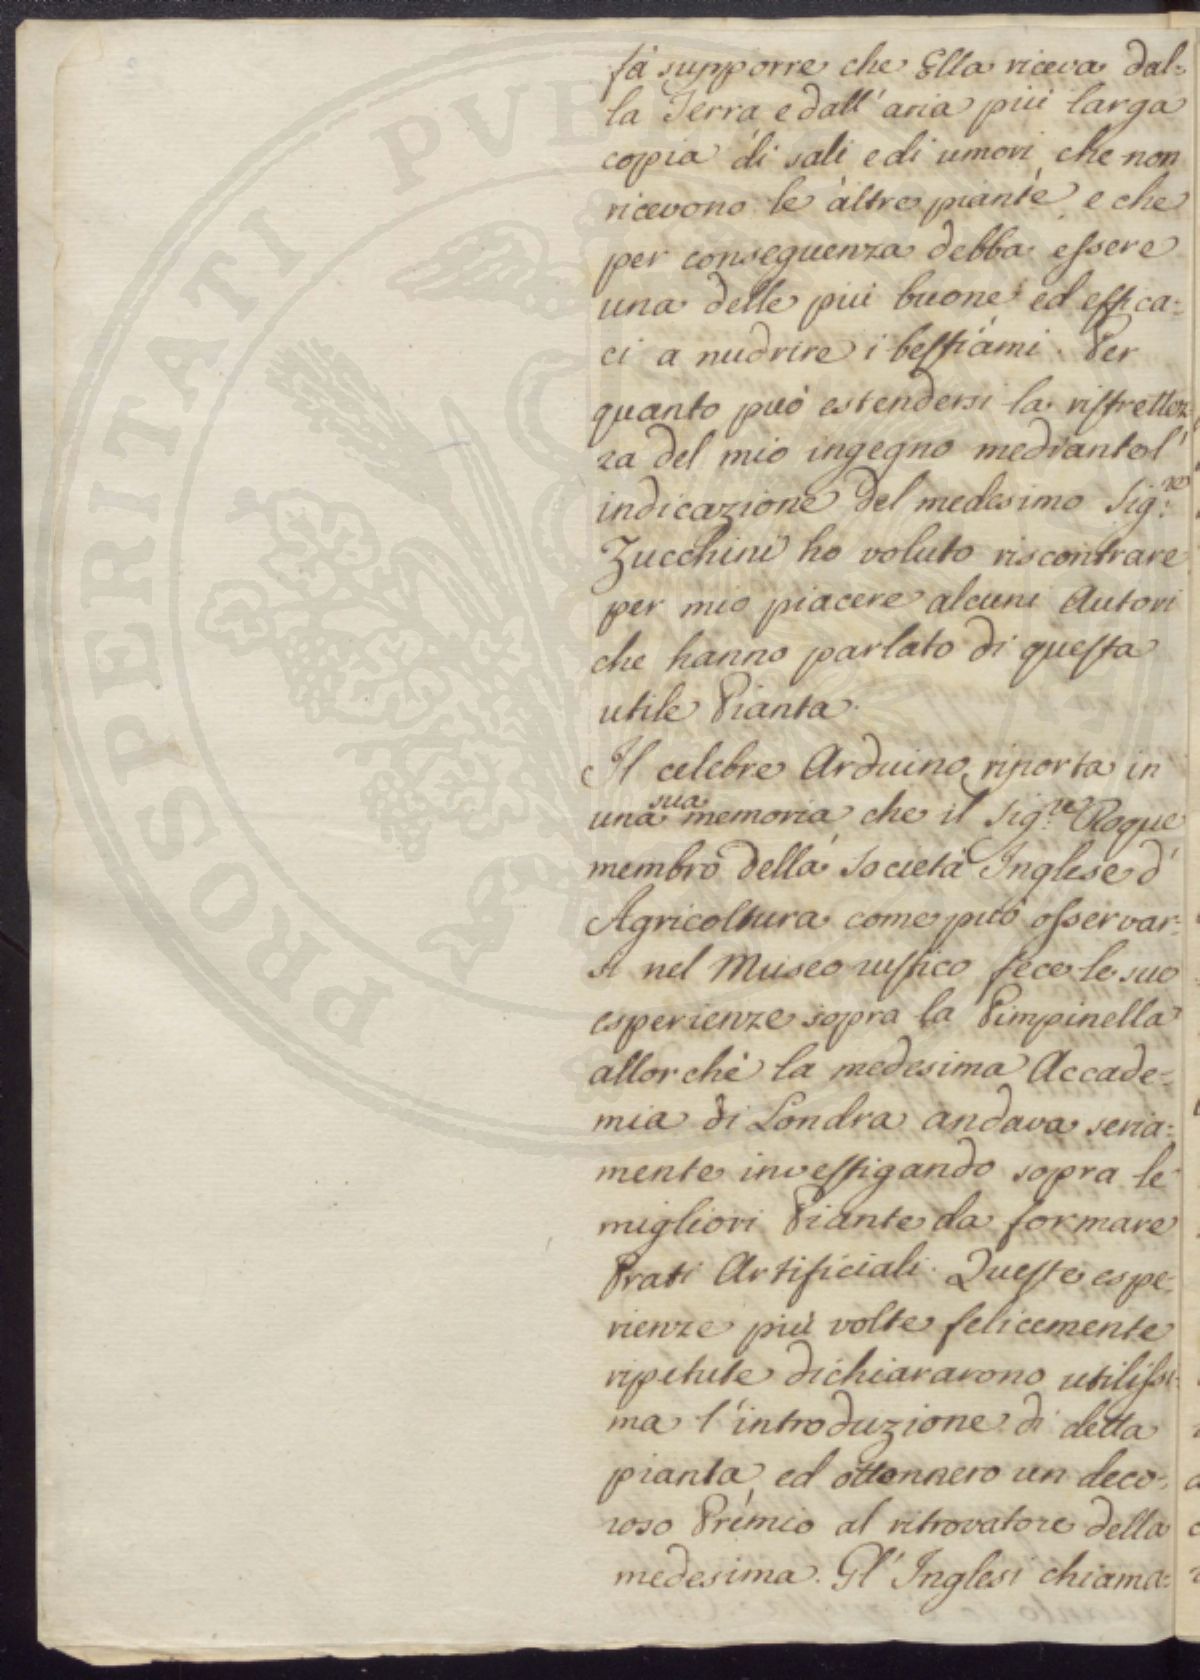 fà supporre che Ella riceva dal=
la Terra e dall'aria più larga
copia di sali e di umori che non
ricevono le altre piante, e che
per conseguenza debba essere
una delle più buone ed effica=
ci a nudrire i bestiami. Per
quanto può estendersi la ristrettez
za del mio ingegno mediante l'
indicazione del medesimo Sig:re
Zucchini ho voluto riscontrare
per mio piacere alcuni Autori
che hanno parlato di questa
utile Pianta.
Il celebre Arduino riporta in
una sua memoria che il Sig:re Roque
membro della Società Inglese d'
Agricoltura come può osservar=
si nel Museo rustico fece le sue
esperienze sopra la Pimpinella
allorchè la medesima Accade=
mia di Londra andava seria=
mente investigando sopra le
migliori Piante da formare
Prati Artificiali. Queste espe=
rienze più volte felicemente
ripetute dichiararono utilissi=
ma l'introduzione di detta
pianta, ed ottennero un deco=
roso Premio al ritrovatore della
medesima. Gl'Inglesi chiama=
PROSPERITATI PVB